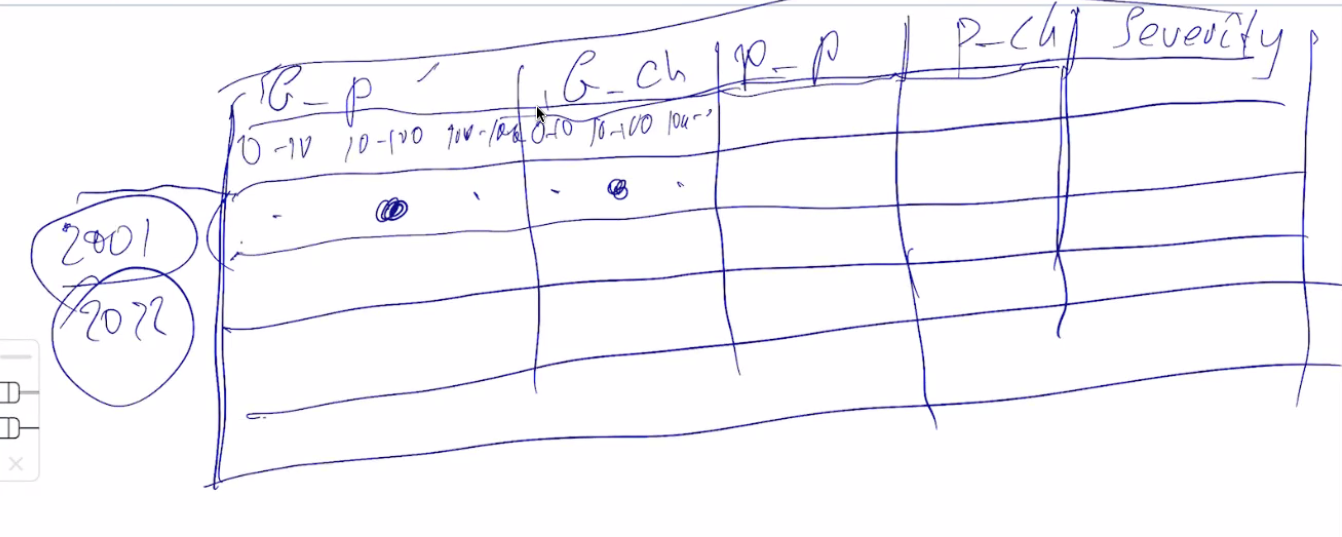 G_p G_ch p_p P_ch Severity
0-10 10-100 100-1000 0-10 10-100
2001
2022